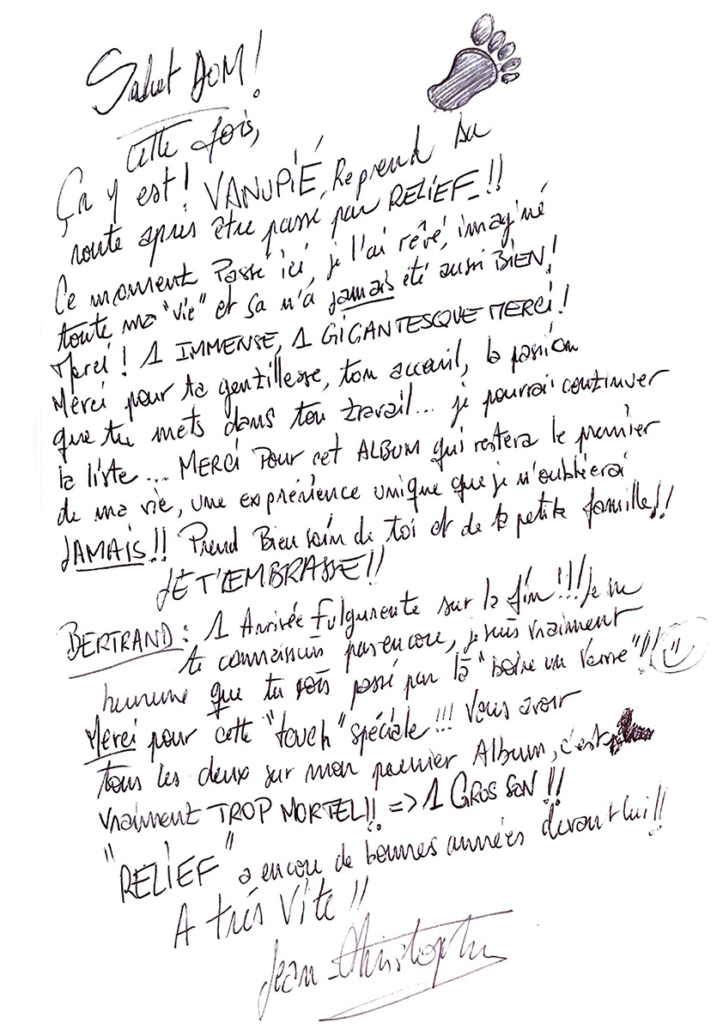 Salut DOM!
Cette fois,
ça y est! VANUPIÉ, Reprend sa
route après être passé par RELIEF_!!
Ce moment Passé ici, je l'ai rêvé, imaginé
toute ma "vie" et sa n'a jamais été aussi BIEN!
Merci! 1 IMMENSE, 1 GIGANTESQUE MERCI!
Merci pour ta gentillesse, ton accueil, la passion
que tu mets dans ton travail... je pourrai continuer
la liste... MERCI Pour cet ALBUM qui restera le premier
de ma vie, une expérience unique que je n'oublierai
JAMAIS!! Prend Bien soin de toi et de ta petite famille!!
JE T'EMBRASSE!!
BERTRAND: 1 Arrivée fulgurente sur la fin!!! Je ne
te connaissais pas encore, je suis vraiment
heureux que tu sois passé par là "boire un verre"!!
Merci pour cette "touch" spéciale!!! Vous avoir
tous les deux sur mon premier Album, c'est
vraiment TROP MORTEL!! => 1 GROS SON!!
"RELIEF" a encore de bonnes années devant lui!!
A très Vite!!
Jean-Christophe